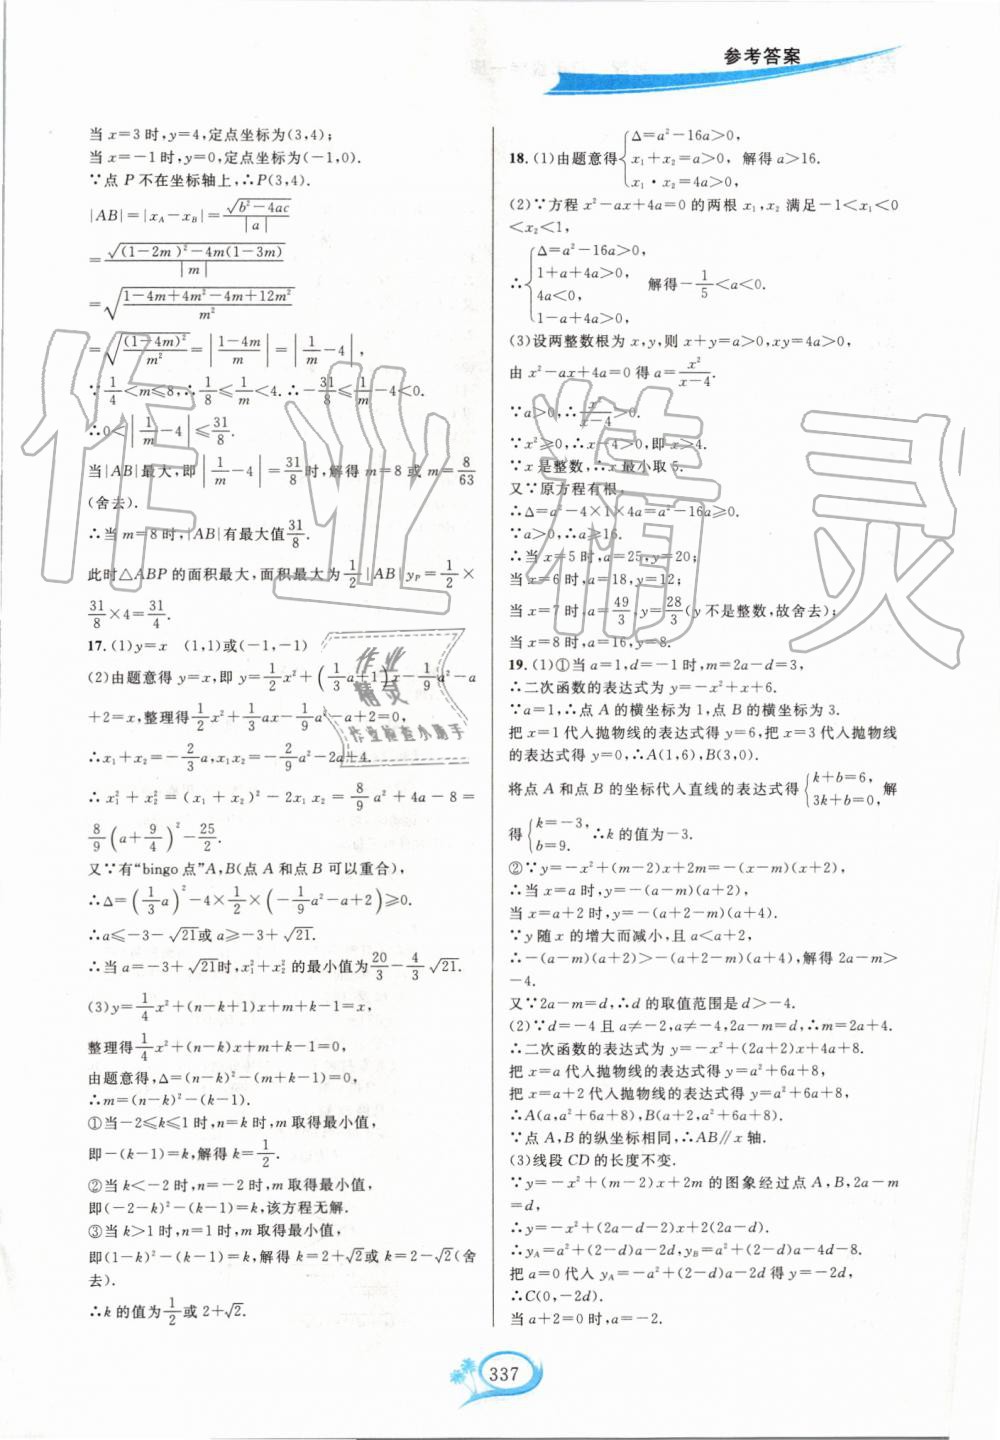 参考答案
当 x=3 时,y=4,定点坐标为(3,4);
当 x=-1 时,y=0,定点坐标为(-1,0).
∵点 P 不在坐标轴上,∴P(3,4).
|AB|=|x_A-x_B|=√(b²-4ac)/|a|
=√((1-2m)²-4m(1-3m))/|m|
=√((1-4m+4m²-4m+12m²)/m²)
=√((1-4m)²/m²)=|(1-4m)/m|=|1/m-4|,
∵1/4<m≤8,∴1/8≤1/m<4.∴-31/8≤1/m-4<0.
∴0<|1/m-4|≤31/8.
当|AB|最大,即|1/m-4|=31/8时,解得 m=8 或 m=8/63
(舍去).
∴当 m=8 时,|AB|有最大值31/8.
此时△ABP 的面积最大,面积最大为1/2|AB|y_P=1/2×
31/8×4=31/4.
17.(1)y=x (1,1)或(-1,-1)
(2)由题意得 y=x,即 y=1/2x²+(1/3a+1)x-1/9a²-a
+2=x,整理得1/2x²+1/3ax-1/9a²-a+2=0,
∴x₁+x₂=-2/3a,x₁x₂=-2/9a²-2a+4.
∴x₁²+x₂²=(x₁+x₂)²-2x₁x₂=8/9a²+4a-8=
8/9(a+9/4)²-25/2.
又∵有“bingo 点”A,B(点 A 和点 B 可以重合),
∴Δ=(1/3a)²-4×1/2×(-1/9a²-a+2)≥0.
∴a≤-3-√21或 a≥-3+√21.
∴当 a=-3+√21时,x₁²+x₂²的最小值为20/3-4/3√21.
(3)y=1/4x²+(n-k+1)x+m+k-1=x,
整理得1/4x²+(n-k)x+m+k-1=0,
由题意得,Δ=(n-k)²-(m+k-1)=0,
∴m=(n-k)²-(k-1).
①当-2≤k≤1 时,n=k 时,m 取得最小值,
即-(k-1)=k,解得 k=1/2.
②当 k<-2 时,n=-2 时,m 取得最小值,
即(-2-k)²-(k-1)=k,该方程无解.
③当 k>1 时,n=1 时,m 取得最小值,
即(1-k)²-(k-1)=k,解得 k=2+√2或 k=2-√2(舍
去).
∴k 的值为1/2或 2+√2.
18.(1)由题意得{Δ=a²-16a>0, x₁+x₂=a>0, x₁·x₂=4a>0, 解得 a>16.
(2)∵方程 x²-ax+4a=0 的两根 x₁,x₂ 满足-1<x₁<0
<x₂<1,
∴{Δ=a²-16a>0, 1+a+4a>0, 4a<0, 1-a+4a>0, 解得-1/5<a<0.
(3)设两整数根为 x,y,则 x+y=a>0,xy=4a>0,
由 x²-ax+4a=0 得 a=x²/(x-4).
∵a>0,∴x²/(x-4)>0.
∵x²≥0,∴x-4>0,即 x>4.
∵x 是整数,∴x 最小取 5.
又∵原方程有根,
∴Δ=a²-4×1×4a=a²-16a≥0.
∵a>0,∴a≥16.
∴当 x=5 时,a=25,y=20;
当 x=6 时,a=18,y=12;
当 x=7 时,a=49/3,y=28/3(y 不是整数,故舍去);
当 x=8 时,a=16,y=8.
19.(1)①当 a=1,d=-1 时,m=2a-d=3,
∴二次函数的表达式为 y=-x²+x+6.
∵a=1,∴点 A 的横坐标为 1,点 B 的横坐标为 3.
把 x=1 代入抛物线的表达式得 y=6,把 x=3 代入抛物线
的表达式得 y=0,∴A(1,6),B(3,0).
将点 A 和点 B 的坐标代入直线的表达式得{k+b=6, 3k+b=0,解
得{k=-3, b=9. ∴k 的值为-3.
②∵y=-x²+(m-2)x+2m=-(x-m)(x+2),
∴当 x=a 时,y=-(a-m)(a+2),
当 x=a+2 时,y=-(a+2-m)(a+4).
∵y 随 x 的增大而减小,且 a<a+2,
∴-(a-m)(a+2)>-(a+2-m)(a+4),解得 2a-m>
-4.
又∵2a-m=d,∴d 的取值范围是 d>-4.
(2)∵d=-4 且 a≠-2,a≠-4,2a-m=d,∴m=2a+4.
∴二次函数的表达式为 y=-x²+(2a+2)x+4a+8.
把 x=a 代入抛物线的表达式得 y=a²+6a+8.
把 x=a+2 代入抛物线的表达式得 y=a²+6a+8.
∴A(a,a²+6a+8),B(a+2,a²+6a+8).
∵点 A,B 的纵坐标相同,∴AB∥x 轴.
(3)线段 CD 的长度不变.
∵y=-x²+(m-2)x+2m 的图象经过点 A,B,2a-m
=d,
∴y=-x²+(2a-d-2)x+2(2a-d).
∴y_A=a²+(2-d)a-2d,y_B=a²+(2-d)a-4d-8.
把 a=0 代入 y_A=-a²+(2-d)a-2d 得 y=-2d.
∴C(0,-2d).
当 a+2=0 时,a=-2.
337
作业精灵
作业
精灵
作业检查小助手